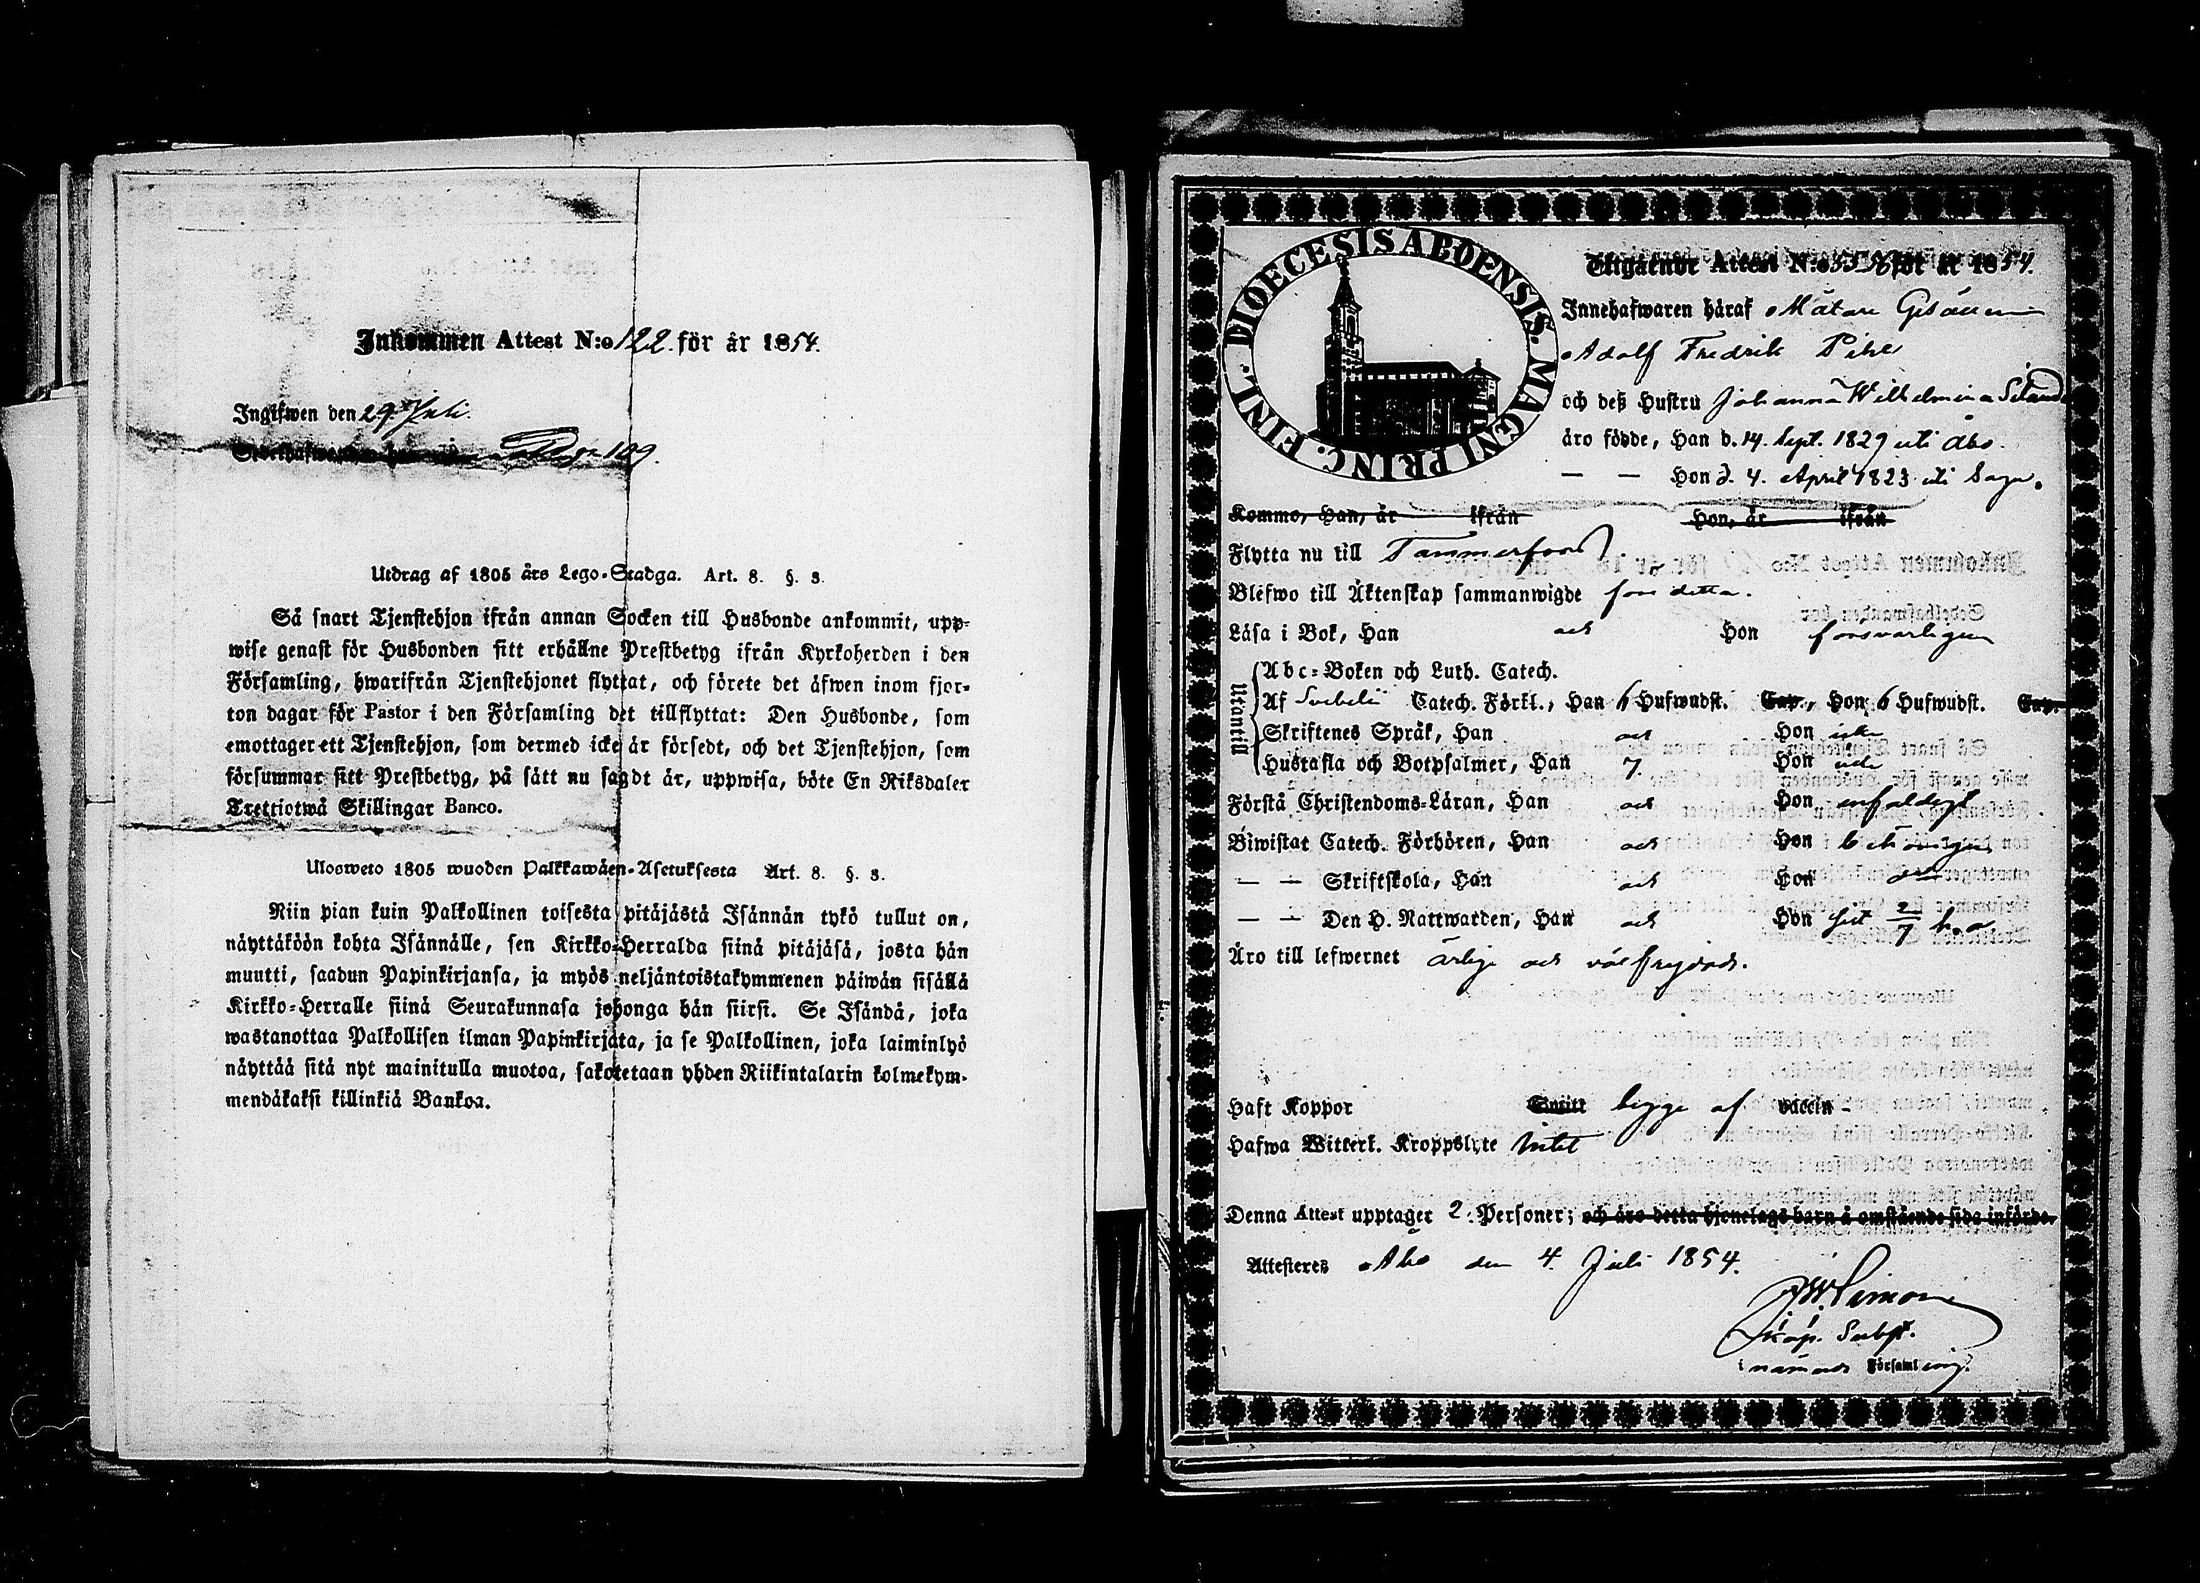 Inkommen Attest N:o 122 för år 1854.
Ingifwen den 29. Juli.
109.
Utdrag af 1805 års Lego-Stadga. Art. 8. §. 3.
Så snart Tjenstehjon ifrån annan Socken till Husbonde ankommit, upp-
wise genast för Husbonden sitt erhållne Prestbetyg ifrån Kyrkoherden i den
Församling, hwarifrån Tjenstehjonet flyttat, och förete det äfwen inom fjor-
ton dagar för Pastor i den Församling det tillflyttat: Den Husbonde, som
emottager ett Tjenstehjon, som dermed icke är försedt, och det Tjenstehjon, som
försummar sitt Prestbetyg, på sätt nu sagdt är, uppwisa, böte En Riksdaler
Trettiotwå Skillingar Banco.
Ulosweto 1805 wuoden Palkkawäen-Asetuksesta Art. 8. §. 3.
Niin pian kuin Palkollinen toisesta pitäjästä Isännän tykö tullut on,
näyttäköön kohta Isännälle, sen Kirkko-Herralda siinä pitäjäsä, josta hän
muutti, saadun Papinkirjansa, ja myös neljäntoistakymmenen päiwän sisällä
Kirkko-Herralle siinä Seurakunnasa johonga hän siirsi. Se Isändä, joka
wastanottaa Palkollisen ilman Papinkirjata, ja se Palkollinen, joka laiminlyö
näyttää sitä nyt mainitulla muotoa, sakotetaan yhden Riikintalarin kolmekym-
mendäkaksi killinkiä Bankoa.
DIOECESIS ABOENSIS. MAGNI PRINC. FINL.
Utgående Attest N:o för år 1854.
Innehafwaren häraf Mätare Gesällen
Adolf Fredrik Pihl
och dess Hustru Johanna Wilhelmina
äro födde, Han d. 14. Sept. 1829 uti Åbo.
— — Hon d. 4. April 1823 uti Sagu.
Kommo, Han, år ifrån Hon, år ifrån
Flytta nu till Tammerfors
Blefwo till Äktenskap sammanwigde före detta.
Läsa i Bok, Han och Hon försvarligen
Utantill
Abc-Boken och Luth. Catech.
Af Svebelii Catech. Förkl., Han 6 Hufwudst. Cap., Hon 6 Hufwudst. Cap.
Skriftenes Språk, Han och Hon icke
Hustafla och Botpsalmer, Han 7. Hon icke
Förstå Christendoms-Läran, Han och Hon enfaldigt.
Biwistat Catech. Förhören, Han och Hon
— — Skriftskola, Han och Hon
— — Den H. Nattwarden, Han och Hon sist 2/7 h. a
Äro till lefwernet ärlige och välfrejdade.
Haft Koppor Smitt begge af vaccin
Hafwa Witterl. Kroppslyte Intet
Denna Attest upptager 2. Personer; och äro detta hjonelags barn å omstående sida införde.
Attesteres Åbo den 4. Juli 1854.
Kap. Subst.
i nämnde Församling.